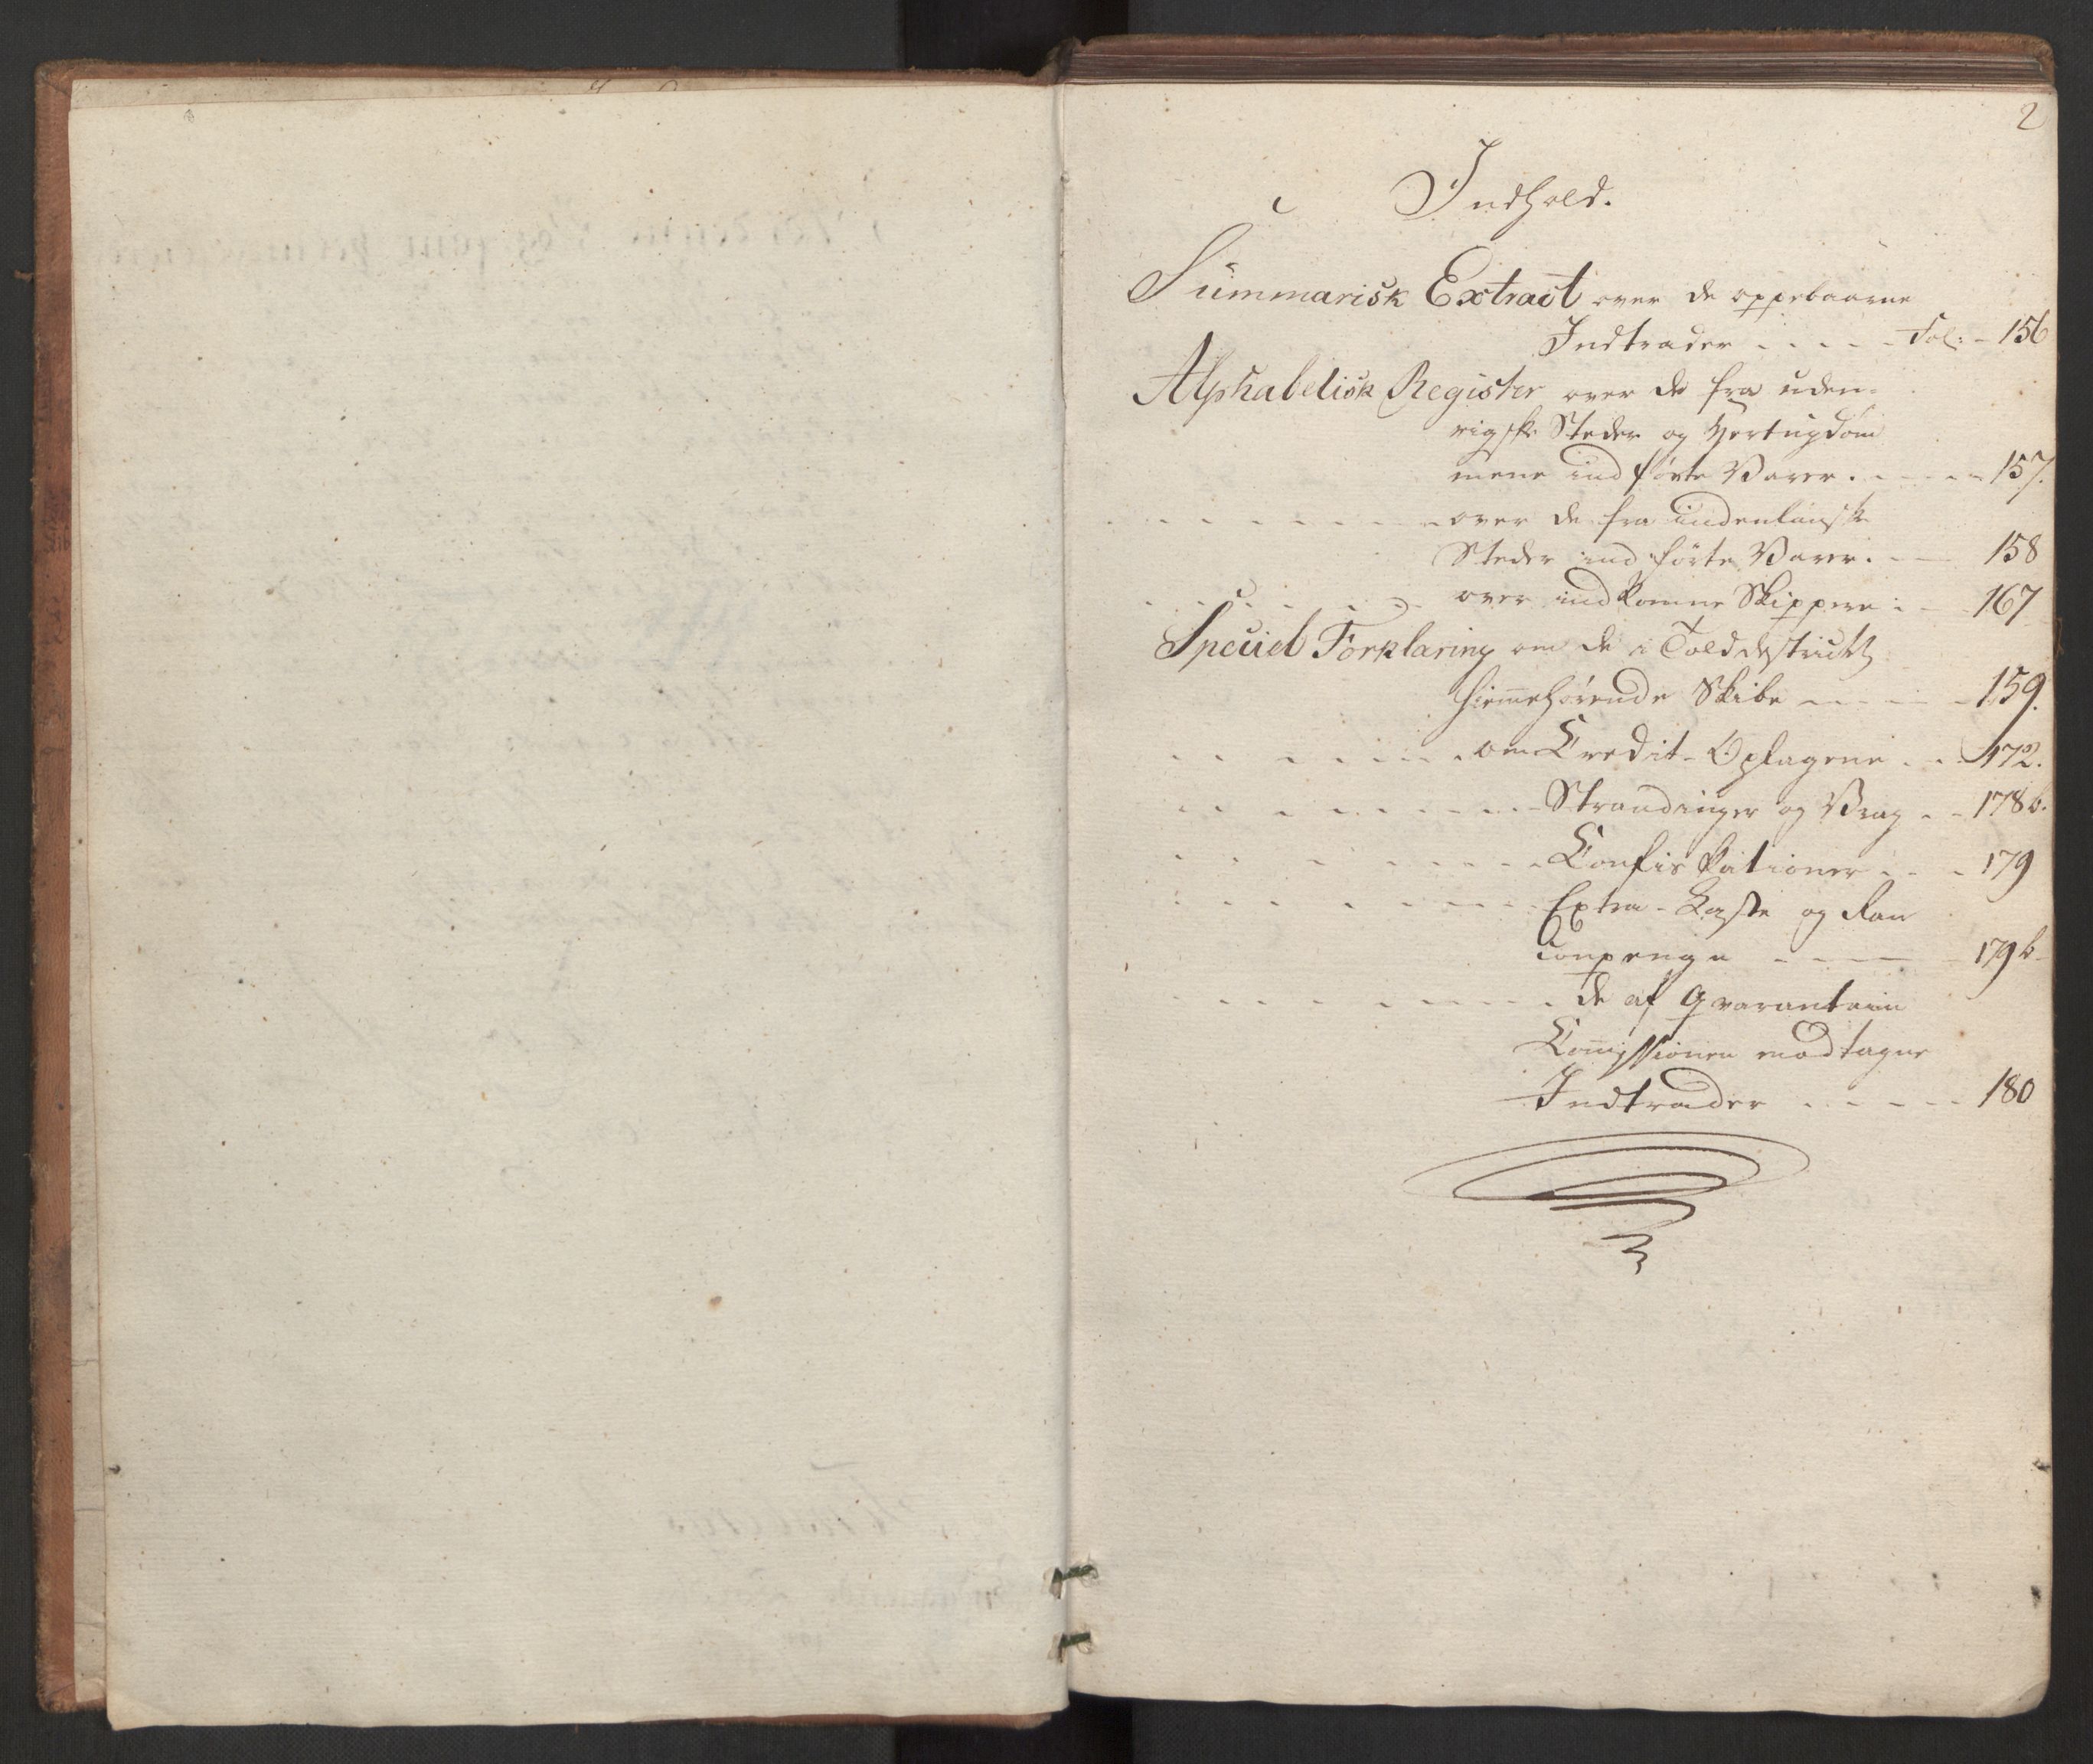 2
Indhold.
Summarisk Extract over de oppebaarne
Indtrader - - - - - Fol: - 156
Alphabetisk Register over de fra uden-
rigske Steder og Hertugdom
mene indførte Varer. - - - - 157.
- - - - - - over de fra indenlanske
Steder indførte Varer. - - 158
- - - - - - over indkomne Skippere - - 167
Speciel Forklaring om de i Tolddistrictet
hiemehørende Skibe - - - - 159.
- - - - - - om Credit-Oplagene - - 172.
- - - - - - Strandinger og Vrag - - 178b.
- - - - - - Confiskationer - - - 179
- - - - - - Extra-Laste og Ran
conpenge - - - - - 179b
- - - - - - de af Qvarantain
Comissionen modtagne
Indtrader - - - - - 180